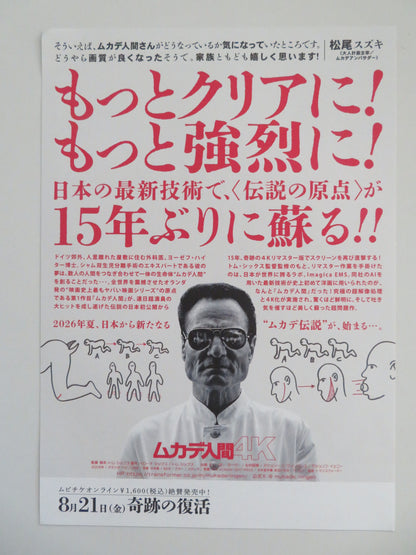 そういえば、ムカデ人間さんがどうなっているか気になっていたところです。
どうやら画質が良くなったそうで、家族ともども嬉しく思います!
松尾スズキ
(大人計画主宰/
ムカデアンバサダー)
もっとクリアに!
もっと強烈に!
日本の最新技術で、〈伝説の原点〉が
15年ぶりに蘇る!!
ドイツ郊外、人里離れた屋敷に住む外科医、ヨーゼフ・ハイ
ター博士。シャム双生児分離手術のエキスパートである彼の
夢は、数人の人間をつなぎ合わせて一体の生命体“ムカデ人間”
を創ることだった…。全世界を震撼させたオランダ
発の“映画史上最もヤバい映画シリーズ”の原点
である第1作目『ムカデ人間』が、連日超満員の
大ヒットを成し遂げた伝説の日本初公開から
15年、奇跡の4Kリマスター版でスクリーンを再び直撃する!
トム・シックス監督監修のもと、リマスター作業を手掛けた
のは、日本が世界に誇るラボ、Imagica EMS。同社のAIを
用いた最新技術が史上初めて洋画に用いられたのが、
なんと『ムカデ人間』だった!究極の超解像処理
と4K化が実施され、驚くほど鮮明に、そして吐き
気を催すほど美しく蘇った超問題作。
2026年夏、日本から新たなる
“ムカデ伝説”が、始まる…。
ムカデ人間4K
ムビチケオンライン¥1,600(税込)絶賛発売中!
8月21日(金)奇跡の復活